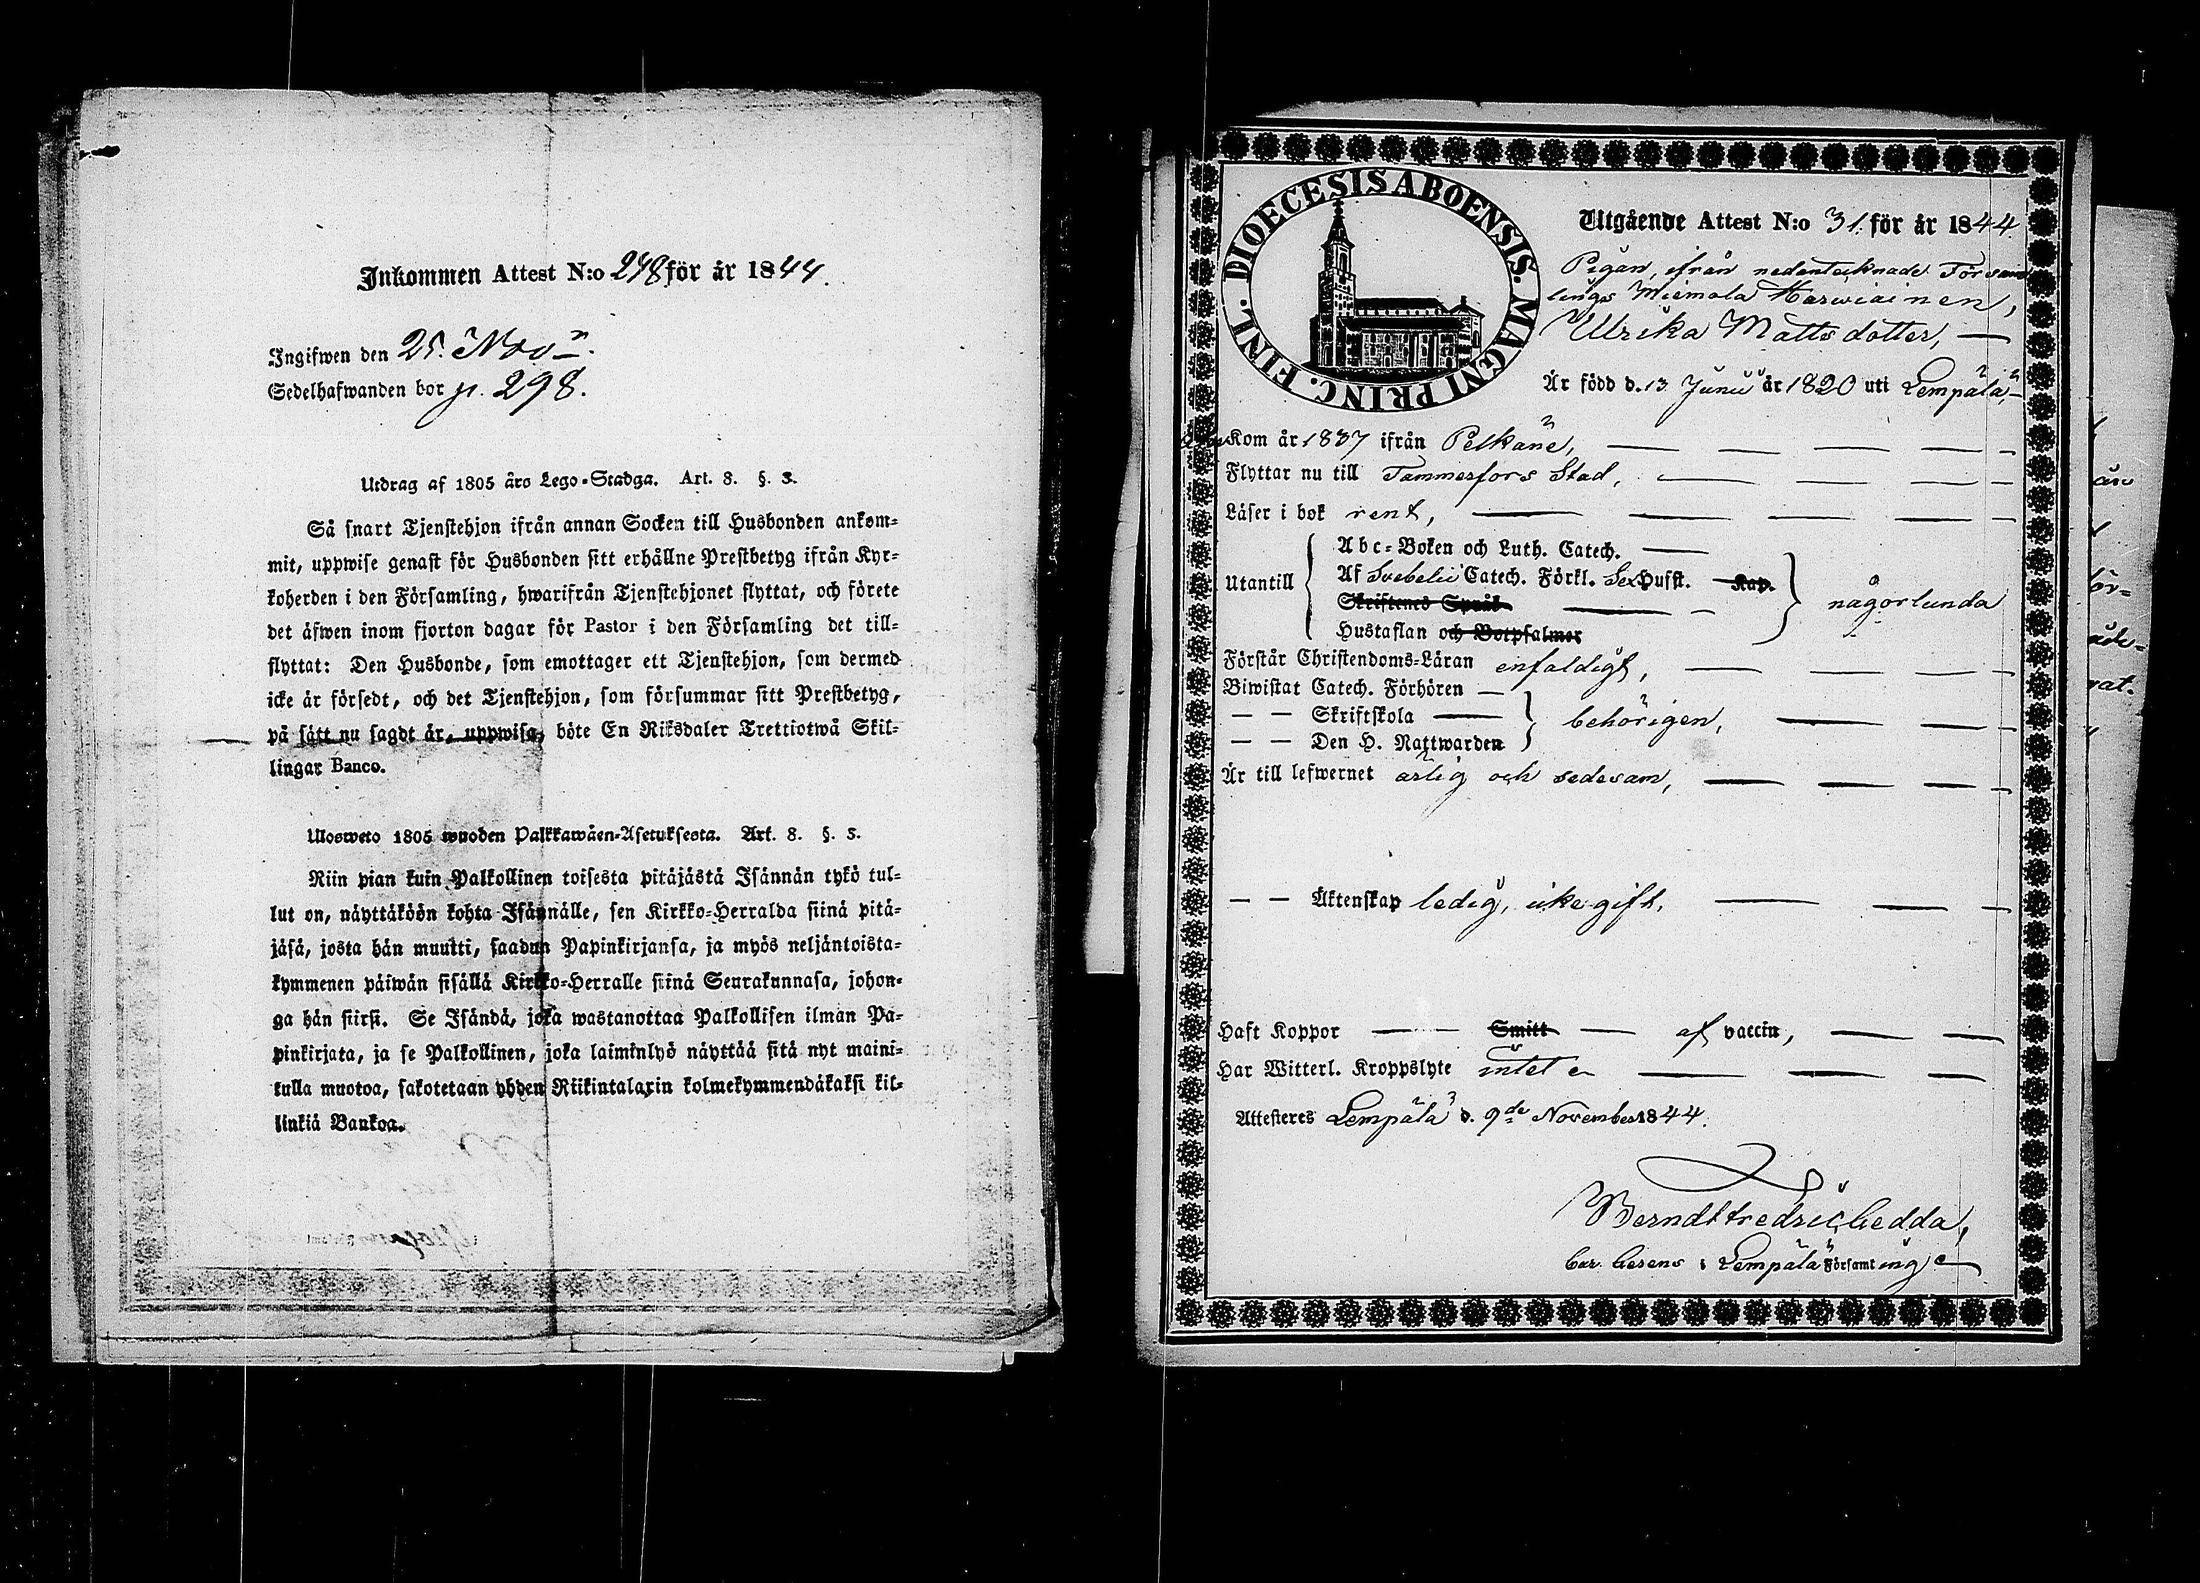 Inkommen Attest N:o 248 för år 1844.
Ingifwen den 25. Nov:
Sedelhafwanden bor p. 298.
Utdrag af 1805 års Lego-Stadga. Art. 8. §. 3.
Så snart Tjenstehjon ifrån annan Socken till Husbonden ankom-
mit, uppwise genast för Husbonden sitt erhållne Prestbetyg ifrån Kyr-
koherden i den Församling, hwarifrån Tjenstehjonet flyttat, och förete
det äfwen inom fjorton dagar för Pastor i den Församling det till-
flyttat: Den Husbonde, som emottager ett Tjenstehjon, som dermed
icke är försedt, och det Tjenstehjon, som försummar sitt Prestbetyg,
på sätt nu sagdt är, uppwisa, böte En Riksdaler Trettiotwå Skil-
lingar Banco.
Ulosweto 1805 wuoden Palkkawäen-Asetuksesta. Art. 8. §. 3.
Niin pian kuin Palkollinen toisesta pitäjästä Isännän tykö tul-
lut on, näyttäköön kohta Isännälle, sen Kirkko-Herralda siinä pitä-
jäsä, josta hän muutti, saadun Papinkirjansa, ja myös neljäntoista-
kymmenen päiwän sisällä Kirkko-Herralle siinä Seurakunnasa, johon-
ga hän siirsi. Se Isändä, joka wastanottaa Palkollisen ilman Pa-
pinkirjata, ja se Palkollinen, joka laiminlyö näyttää sitä nyt maini-
tulla muotoa, sakotetaan yhden Riikintalarin kolmekymmendäkaksi kil-
linkiä Bankoa.
DIOECESIS ABOENSIS. MAGNI PRINC. FINL.
Utgående Attest N:o 31. för år 1844.
Pigan, ifrån nedantecknade Försam
lings Miemola Harwiainen,
Ulrika Mattsdotter,
Är född d. 13 Junii år 1820 uti Lempälä,
Kom år 1837 ifrån Pelkäne,
Flyttar nu till Tammerfors Stad,
Läser i bok rent,
Utantill
Abc-Boken och Luth. Catech.
Af Svebelii Catech. Förkl. Sex Hufst. Kap.
Skriftenes Språk
Hustaflan och Botpsalmer
någorlunda
Förstår Christendoms-Läran enfaldigt,
Biwistat Catech. Förhören
Skriftskola
Den H. Nattwarden
behörigen,
Är till lefwernet ärlig och sedesam,
Äktenskap ledig, icke gift,
Haft Koppor Smitt af vaccin,
Har Witterl. Kroppslyte intet
Attesteras Lempälä d. 9de November 1844.
Berndt Fredric Gedda,
i Lempälä Församling